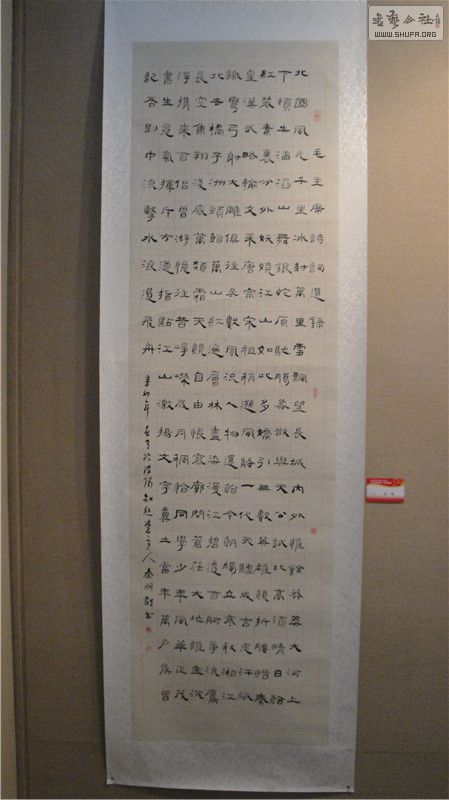 書藝公社
WWW.SHUFA.ORG
毛主席詩詞選録
北國風光千里冰封萬里雪飄望長城內外惟餘莽莽大河上
下頓失滔滔山舞銀蛇原馳臘象欲與天公試比高須晴日看
紅裝素裹分外妖嬈江山如此多嬌引無數英雄競折腰惜秦
皇漢武略輸文采唐宗宋祖稍遜風騷一代天驕成吉思汗祇
識彎弓射大雕俱往矣數風流人物還看今朝獨立寒秋湘江
北去橘子洲頭看萬山紅遍層林盡染漫江碧透百舸爭流鷹
長空魚翔淺底萬類霜天競自由悵寥廓問蒼茫大地誰主沉
浮攜來百侶曾游憶往昔崢嶸歲月稠恰同學少年風華正茂
書生意氣揮斥方遒指點江山激揚文字糞土當年萬戶侯曾
記否到中流擊水浪遏飛舟
辛卯年 主人 書